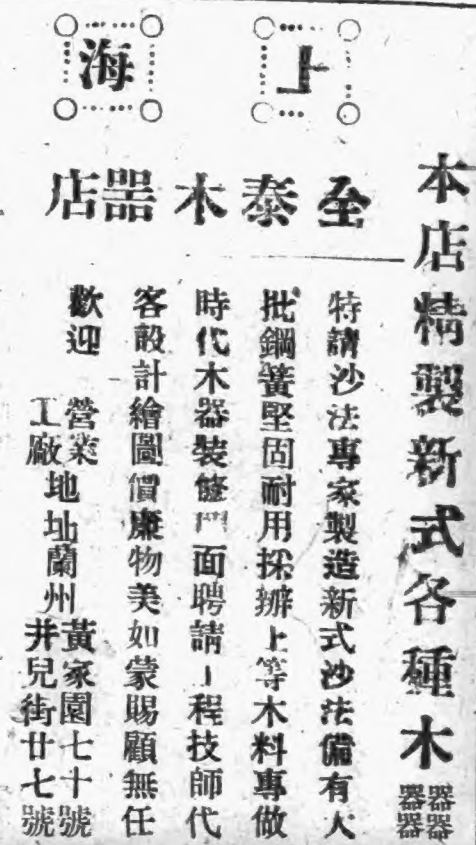 上海
全泰木器店
本店精製新式各種木器器器器
特請沙法專家製造新式沙法備有大
批鋼簧堅固耐用採辦上等木料專做
時代木器裝修門面聘請工程技師代
客設計繪圖價廉物美如蒙賜顧無任
歡迎
營業工廠地址蘭州黃家園七十號井兒街廿七號